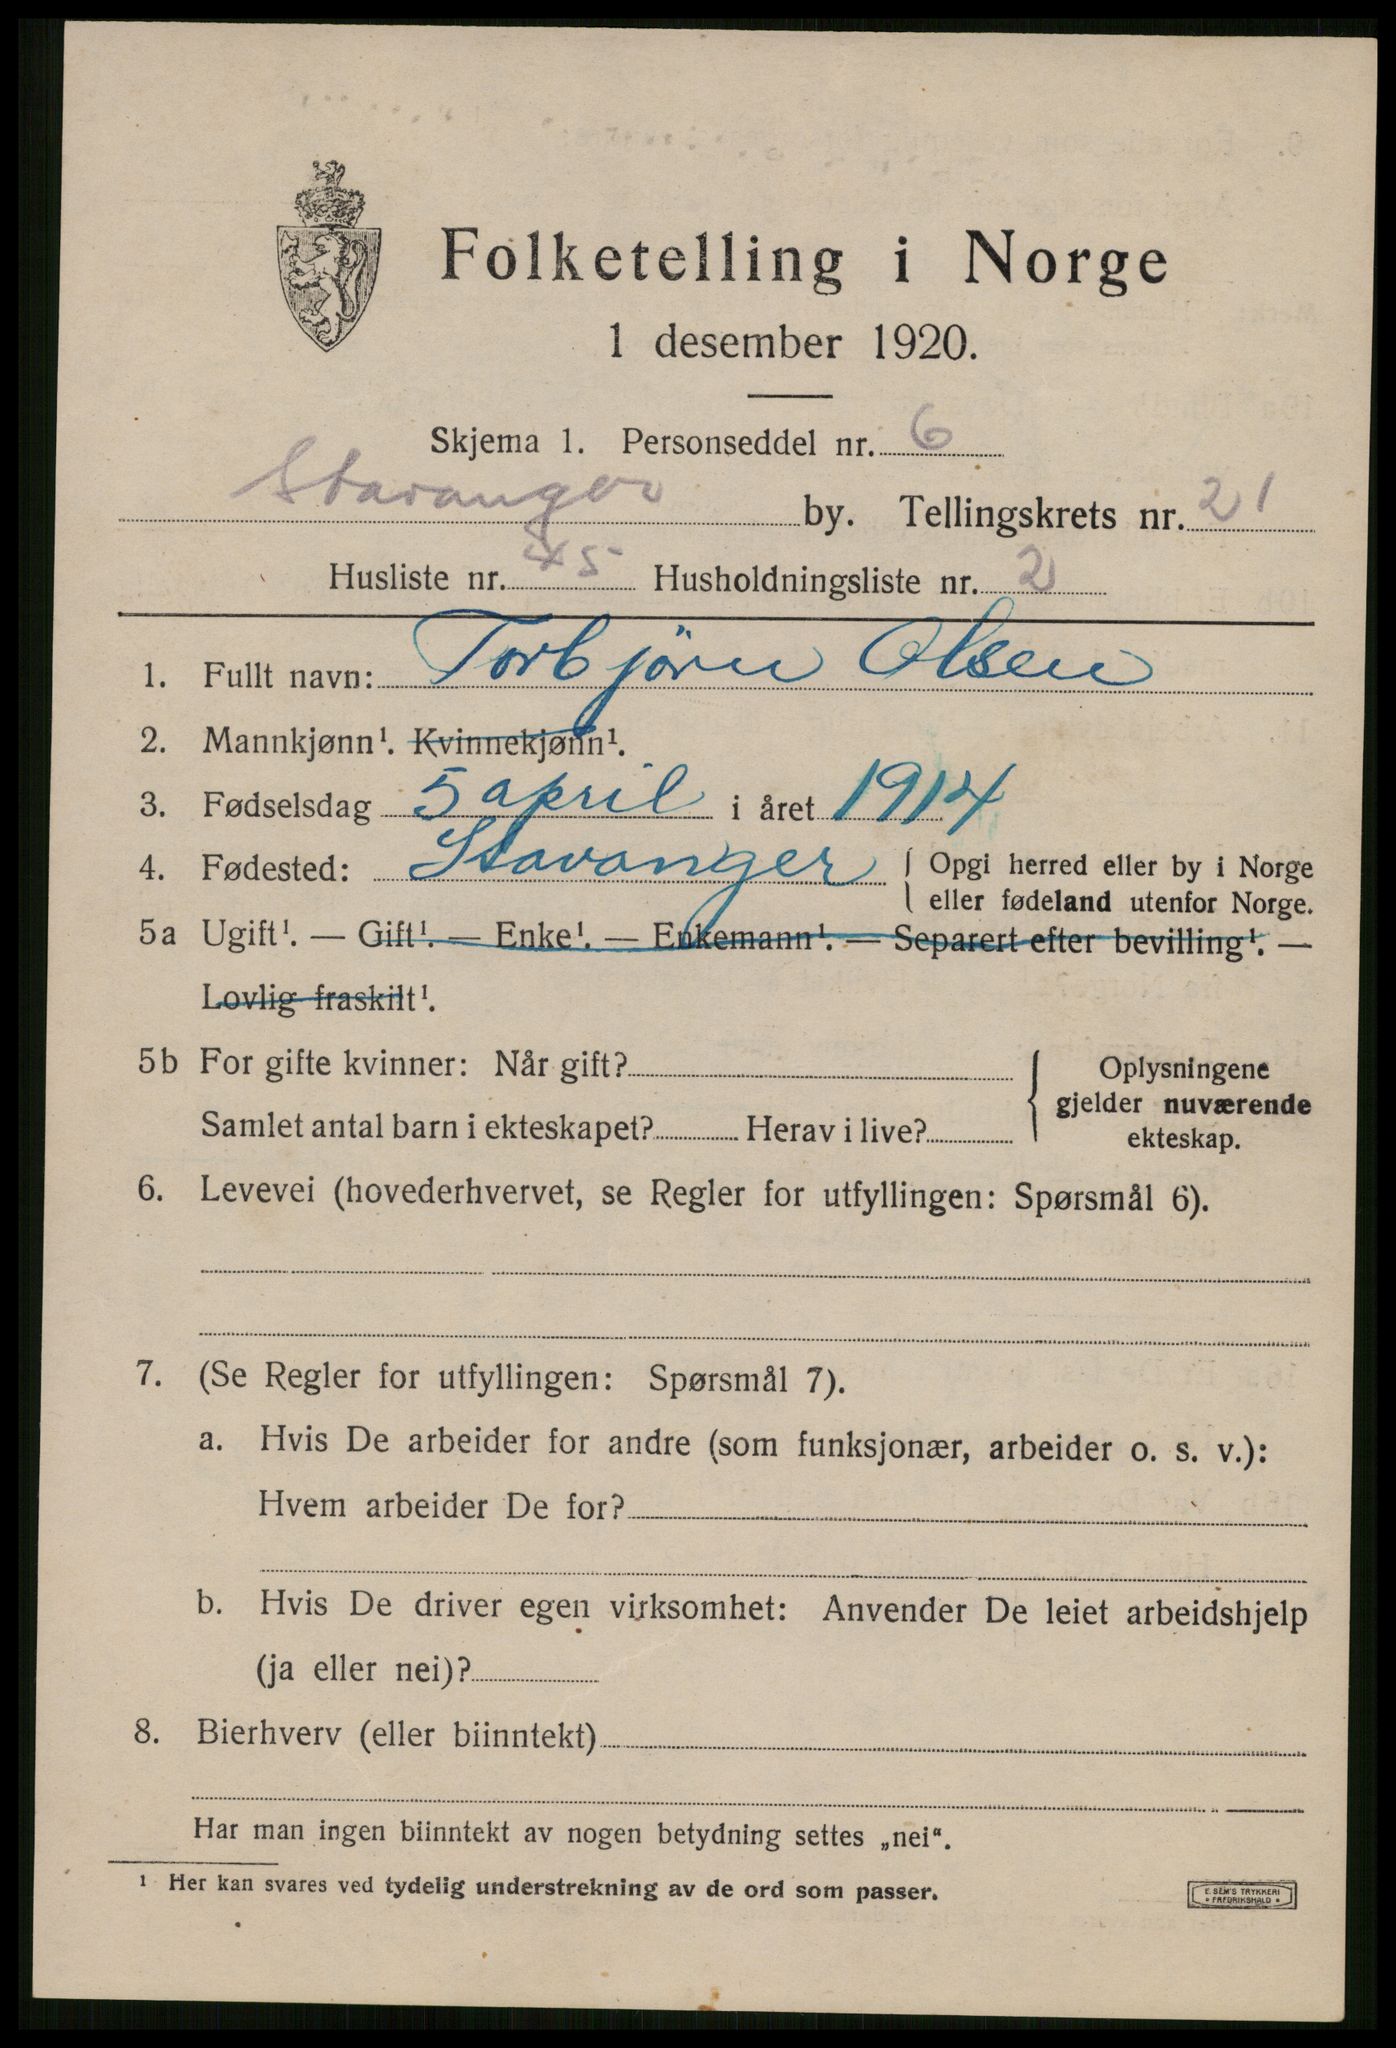 Folketelling i Norge
1 desember 1920.
Skjema 1. Personseddel nr. 6
Stavanger by. Tellingskrets nr. 21
Husliste nr. 45 Husholdningsliste nr. 2
1. Fullt navn: Torbjörn Olsen
2. Mannkjønn¹. Kvinnekjønn¹.
3. Fødselsdag 5 april i året 1914
4. Fødested: Stavanger { Opgi herred eller by i Norge
eller fødeland utenfor Norge.
5a Ugift¹. — Gift¹. — Enke¹. — Enkemann¹. — Separert efter bevilling¹. —
Lovlig fraskilt¹.
5b For gifte kvinner: Når gift?
Samlet antal barn i ekteskapet? Herav i live?
Oplysningene
gjelder nuværende
ekteskap.
6. Levevei (hovederhvervet, se Regler for utfyllingen: Spørsmål 6).
7. (Se Regler for utfyllingen: Spørsmål 7).
a. Hvis De arbeider for andre (som funksjonær, arbeider o. s. v.):
Hvem arbeider De for?
b. Hvis De driver egen virksomhet: Anvender De leiet arbeidshjelp
(ja eller nei)?
8. Bierhverv (eller biinntekt)
Har man ingen biinntekt av nogen betydning settes „nei“.
¹ Her kan svares ved tydelig understrekning av de ord som passer.
E. SEM'S TRYKKERI
FREDRIKSHALD